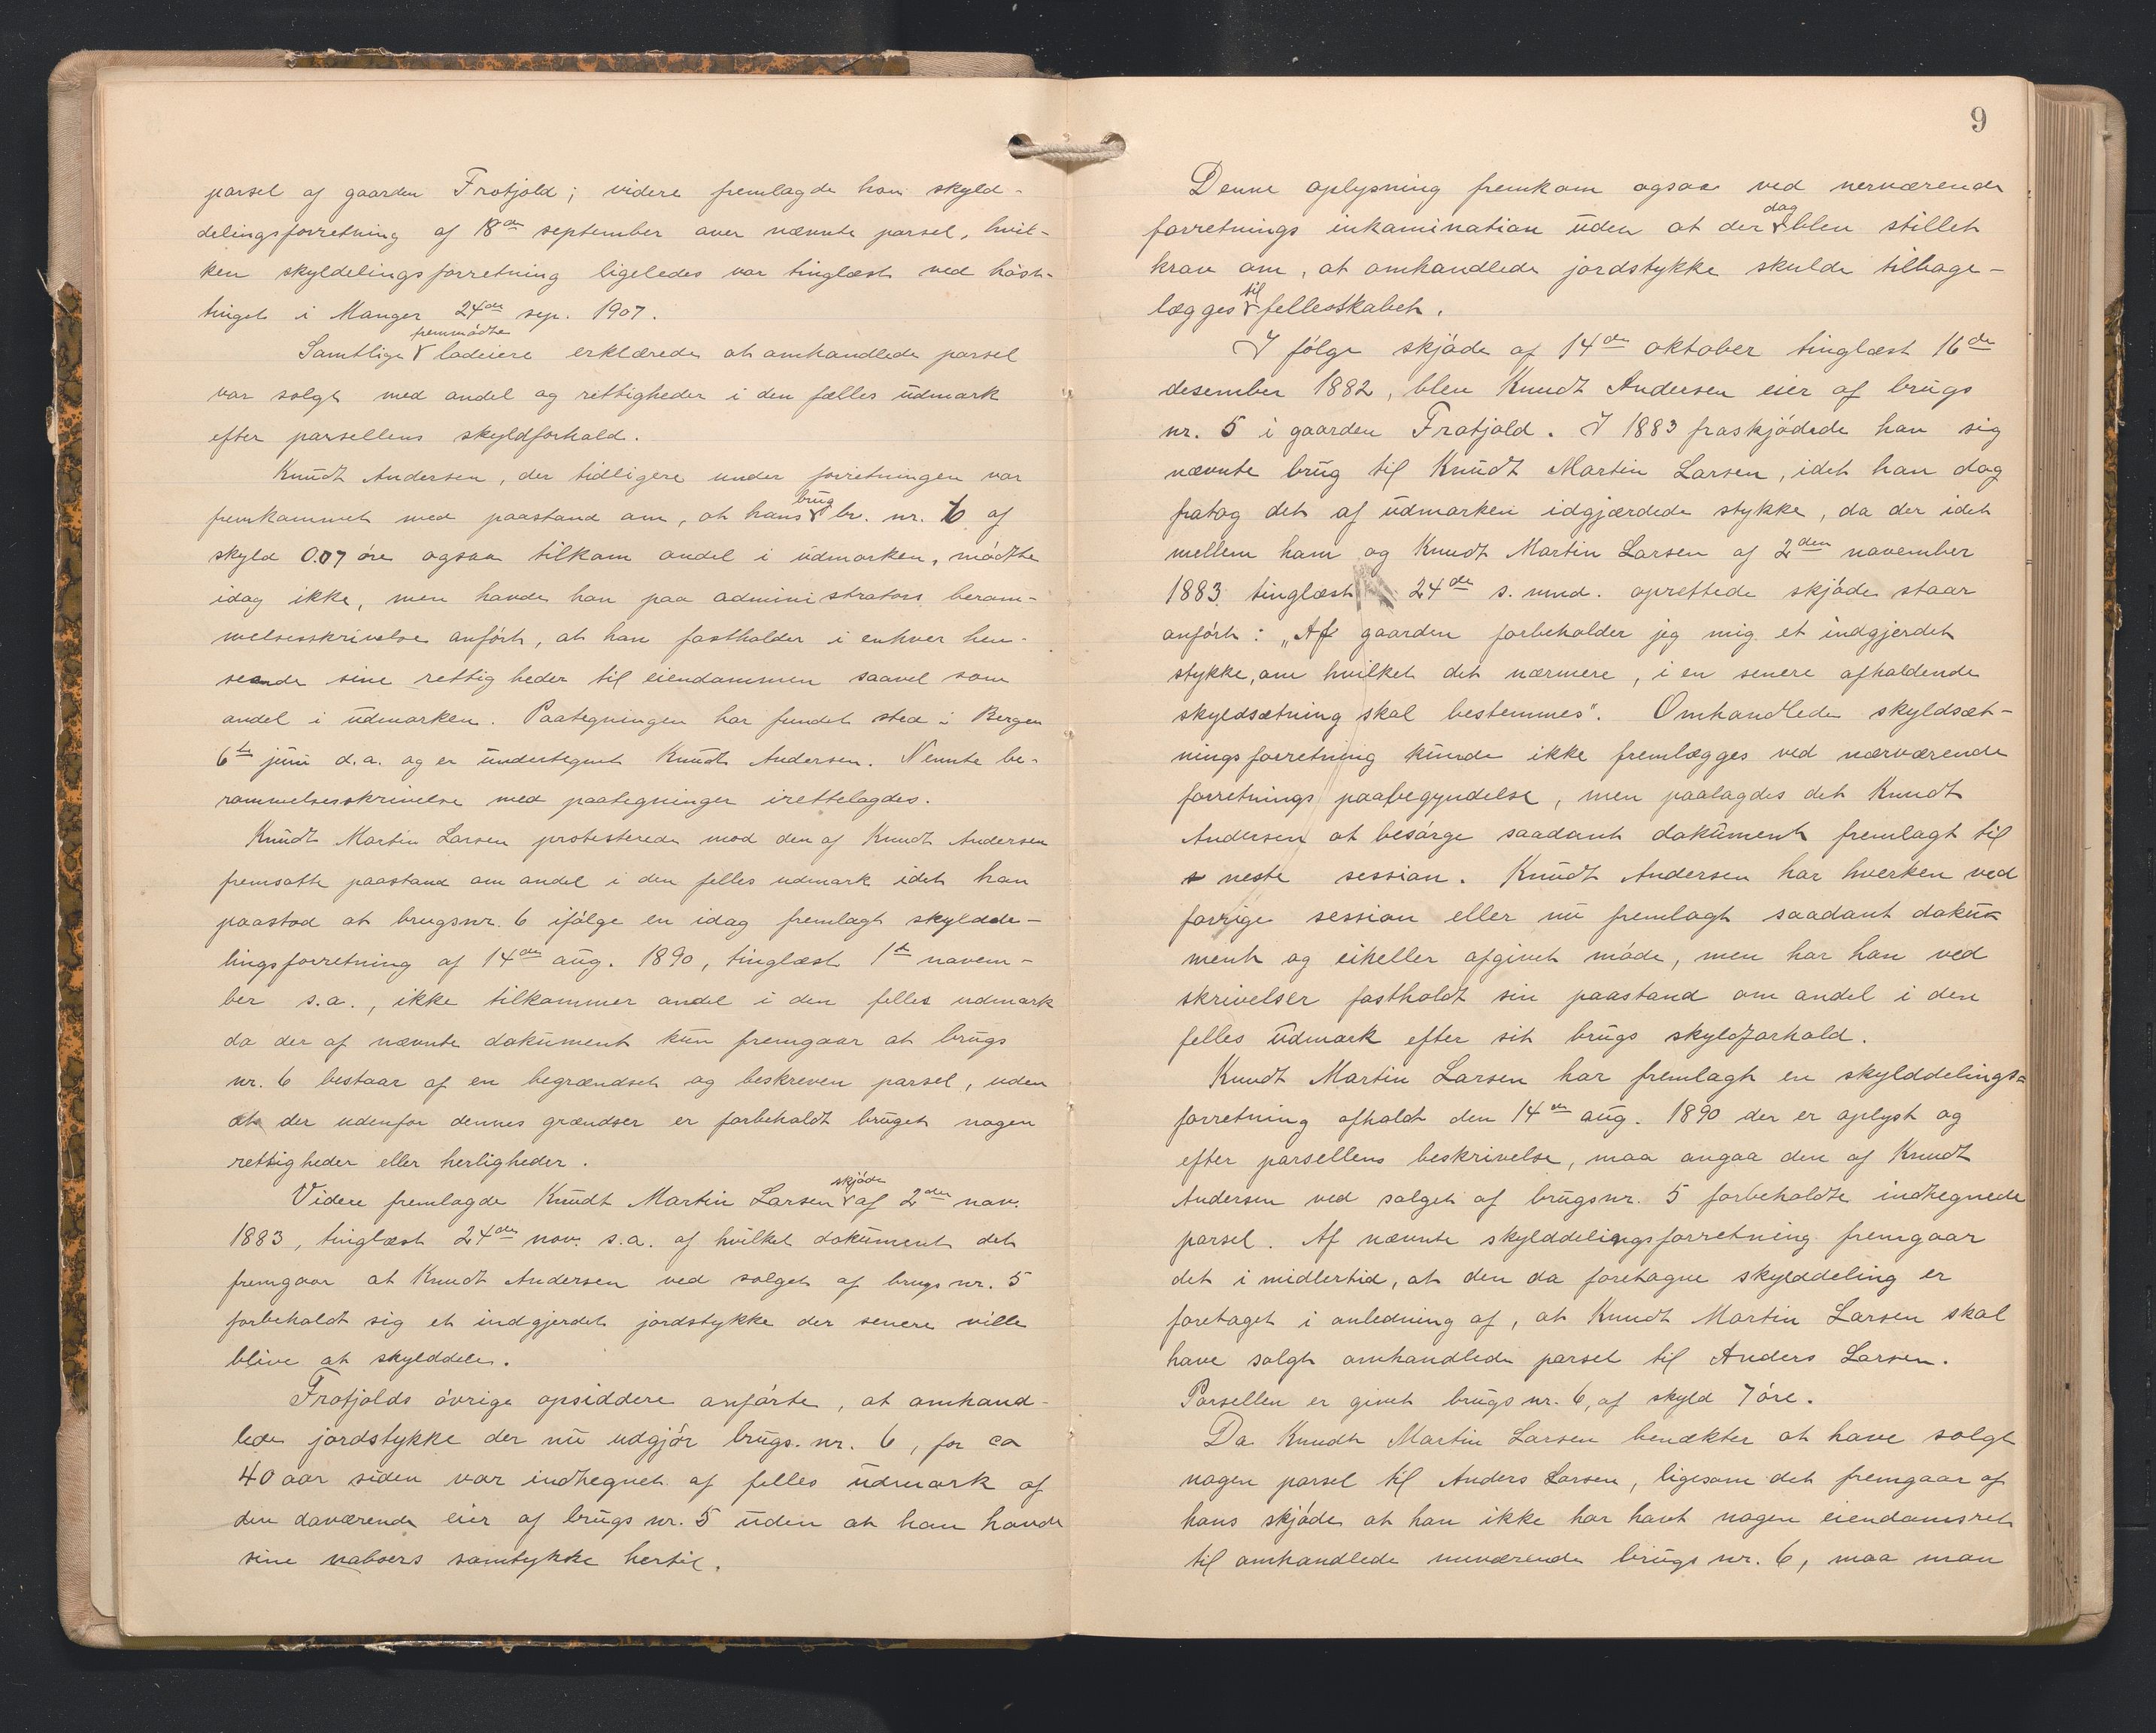 parsel af gaarden Frotjold; videre fremlagde han skyld-
delingsforretning af 18de september over nævnte parsel, hvil-
ken skyldelingsforretning ligeledes var tinglæst ved höst-
tinget i Manger 24de sep. 1907.
Samtlige fremmödte lodeiere erklærede at omhandlede parsel
var solgt med andel og rettigheder i den fælles udmark
efter parsellens skyldforhold.
Knudt Andersen, der tidligere under forretningen var
fremkommet med paastand om, at hans brug br. nr. 6 af
skyld 0.07 öre ogsaa tilkom andel i udmarken, mödte
idag ikke, men havde han paa administrators beram-
melsesskrivelse anfört, at han fastholder i enhver hen-
seende sine rettigheder til eiendommen saavel som
andel i udmarken. Paategningen har fundet sted i Bergen
6te juni d.a. og er undertegnet Knudt Andersen. Nemnte be-
rammelsesskrivelse med paategninger irettelagdes.
Knudt Martin Larsen protesterede mod den af Knudt Andersen
fremsatte paastand om andel i den felles udmark idet han
paastod at brugsnr. 6 ifölge en idag fremlagt skyldde-
lingsforretning af 14de aug. 1890, tinglæst 1te novem-
ber s.a., ikke tilkommer andel i den felles udmark
da der af nævnte dokument kun fremgaar at brugs
nr. 6 bestaar af en begrændset og beskreven parsel, uden
at der udenfor dennes grændser er forbeholdt bruget nogen
rettigheder eller herligheder.
Videre fremlagde Knudt Martin Larsen skjöde af 2den nov.
1883, tinglæst 24de nov. s.a. af hvilket dokument det
fremgaar at Knudt Andersen ved salget af brugs nr. 5
forbeholdt sig et indgjerdet jordstykke der senere ville
blive at skylddele.
Frotjolds övrige opsiddere anförte, at omhand-
lede jordstykke der nu udgjör brugs. nr. 6, for ca
40 aar siden var indhegnet af felles udmark af
den daværende eier af brugs nr. 5 uden at han havde
sine naboers samtykke hertil.
9
Denne oplysning fremkom ogsaa ved nerværende
forretnings inkamination uden at der dog blev stillet
krav om, at omhandlede jordstykke skulde tilbage-
lægges til fellesskabet.
I fölge skjöde af 14de oktober tinglæst 16de
desember 1882, blev Knudt Andersen eier af brugs
nr. 5 i gaarden Frotjold. I 1883 fraskjödede han sig
nævnte brug til Knudt Martin Larsen, idet han dog
fratog det af udmarken idgjærdede stykke, da der idet
mellem ham og Knudt Martin Larsen af 2den november
1883 tinglæst 24de s. mnd. oprettede skjöde staar
anfört: "Af gaarden forbeholder jeg mig et indgjerdet
stykke, om hvilket det nærmere, i en senere afholdende
skyldsætning skal bestemmes". Omhandlede skyldsæt-
ningsforretning kunde ikke fremlægges ved nærværende
forretnings paabegyndelse, men paalagdes det Knudt
Andersen at besörge saadant dokument fremlagt til
neste session. Knudt Andersen har hverken ved
forrige session eller nu fremlagt saadant doku-
ment og eiheller afgivet möde, men har han ved
skrivelser fastholdt sin paastand om andel i den
felles udmark efter sit brugs skyldforhold.
Knudt Martin Larsen har fremlagt en skylddelings=
forretning afholdt den 14de aug. 1890 der er oplyst og
efter parsellens beskrivelse, maa angaa den af Knudt
Andersen ved salget af brugsnr. 5 forbeholdte indhegnede
parsel. Af nævnte skylddelingsforretning fremgaar
det imidlertid, at den da foretagne skylddeling er
foretaget i anledning af, at Knudt Martin Larsen skal
have solgt omhandlede parsel til Anders Larsen.
Parsellen er givet brugs nr. 6, af skyld 7 öre.
Da Knudt Martin Larsen benækter at have solgt
nogen parsel til Anders Larsen, ligesom det fremgaar af
hans skjöde at han ikke har havt nogen eiendomsret
til omhandlede nuværende brugs nr. 6, maa man